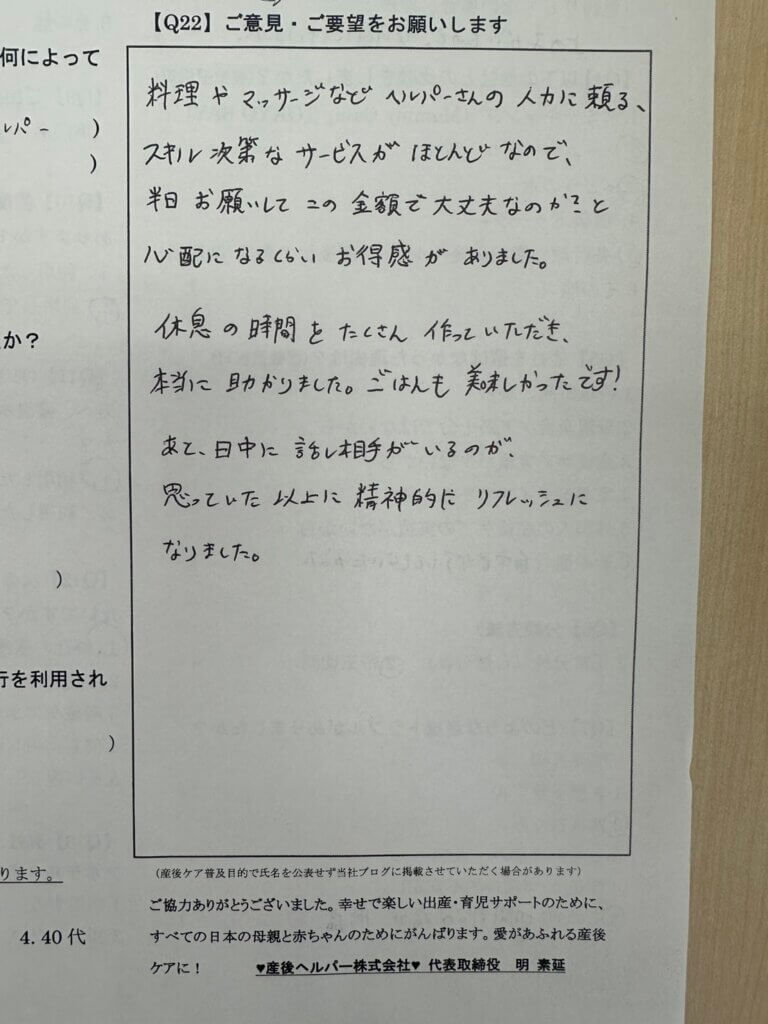 【Q22】ご意見・ご要望をお願いします
何によって
ルパー )
)
か?
)
行を利用され
)
ります。
4. 40代
料理や マッサージなど ヘルパーさんの 人力に 頼る、
スキル 次第な サービスが ほとんど なので、
半日 お願いして この 金額で 大丈夫なのか?と
心配に なるくらい お得感が ありました。
休息の 時間を たくさん 作っていただき、
本当に 助かりました。ごはんも 美味しかったです!
あと、日中に 話し相手がいるのが、
思っていた 以上に 精神的に リフレッシュに
なりました。
(産後ケア普及目的で氏名を公表せず当社ブログに掲載させていただく場合があります)
ご協力ありがとうございました。幸せで楽しい出産・育児サポートのために、
すべての日本の母親と赤ちゃんのためにがんばります。愛があふれる産後
ケアに! ♥産後ヘルパー株式会社♥ 代表取締役 明 素延